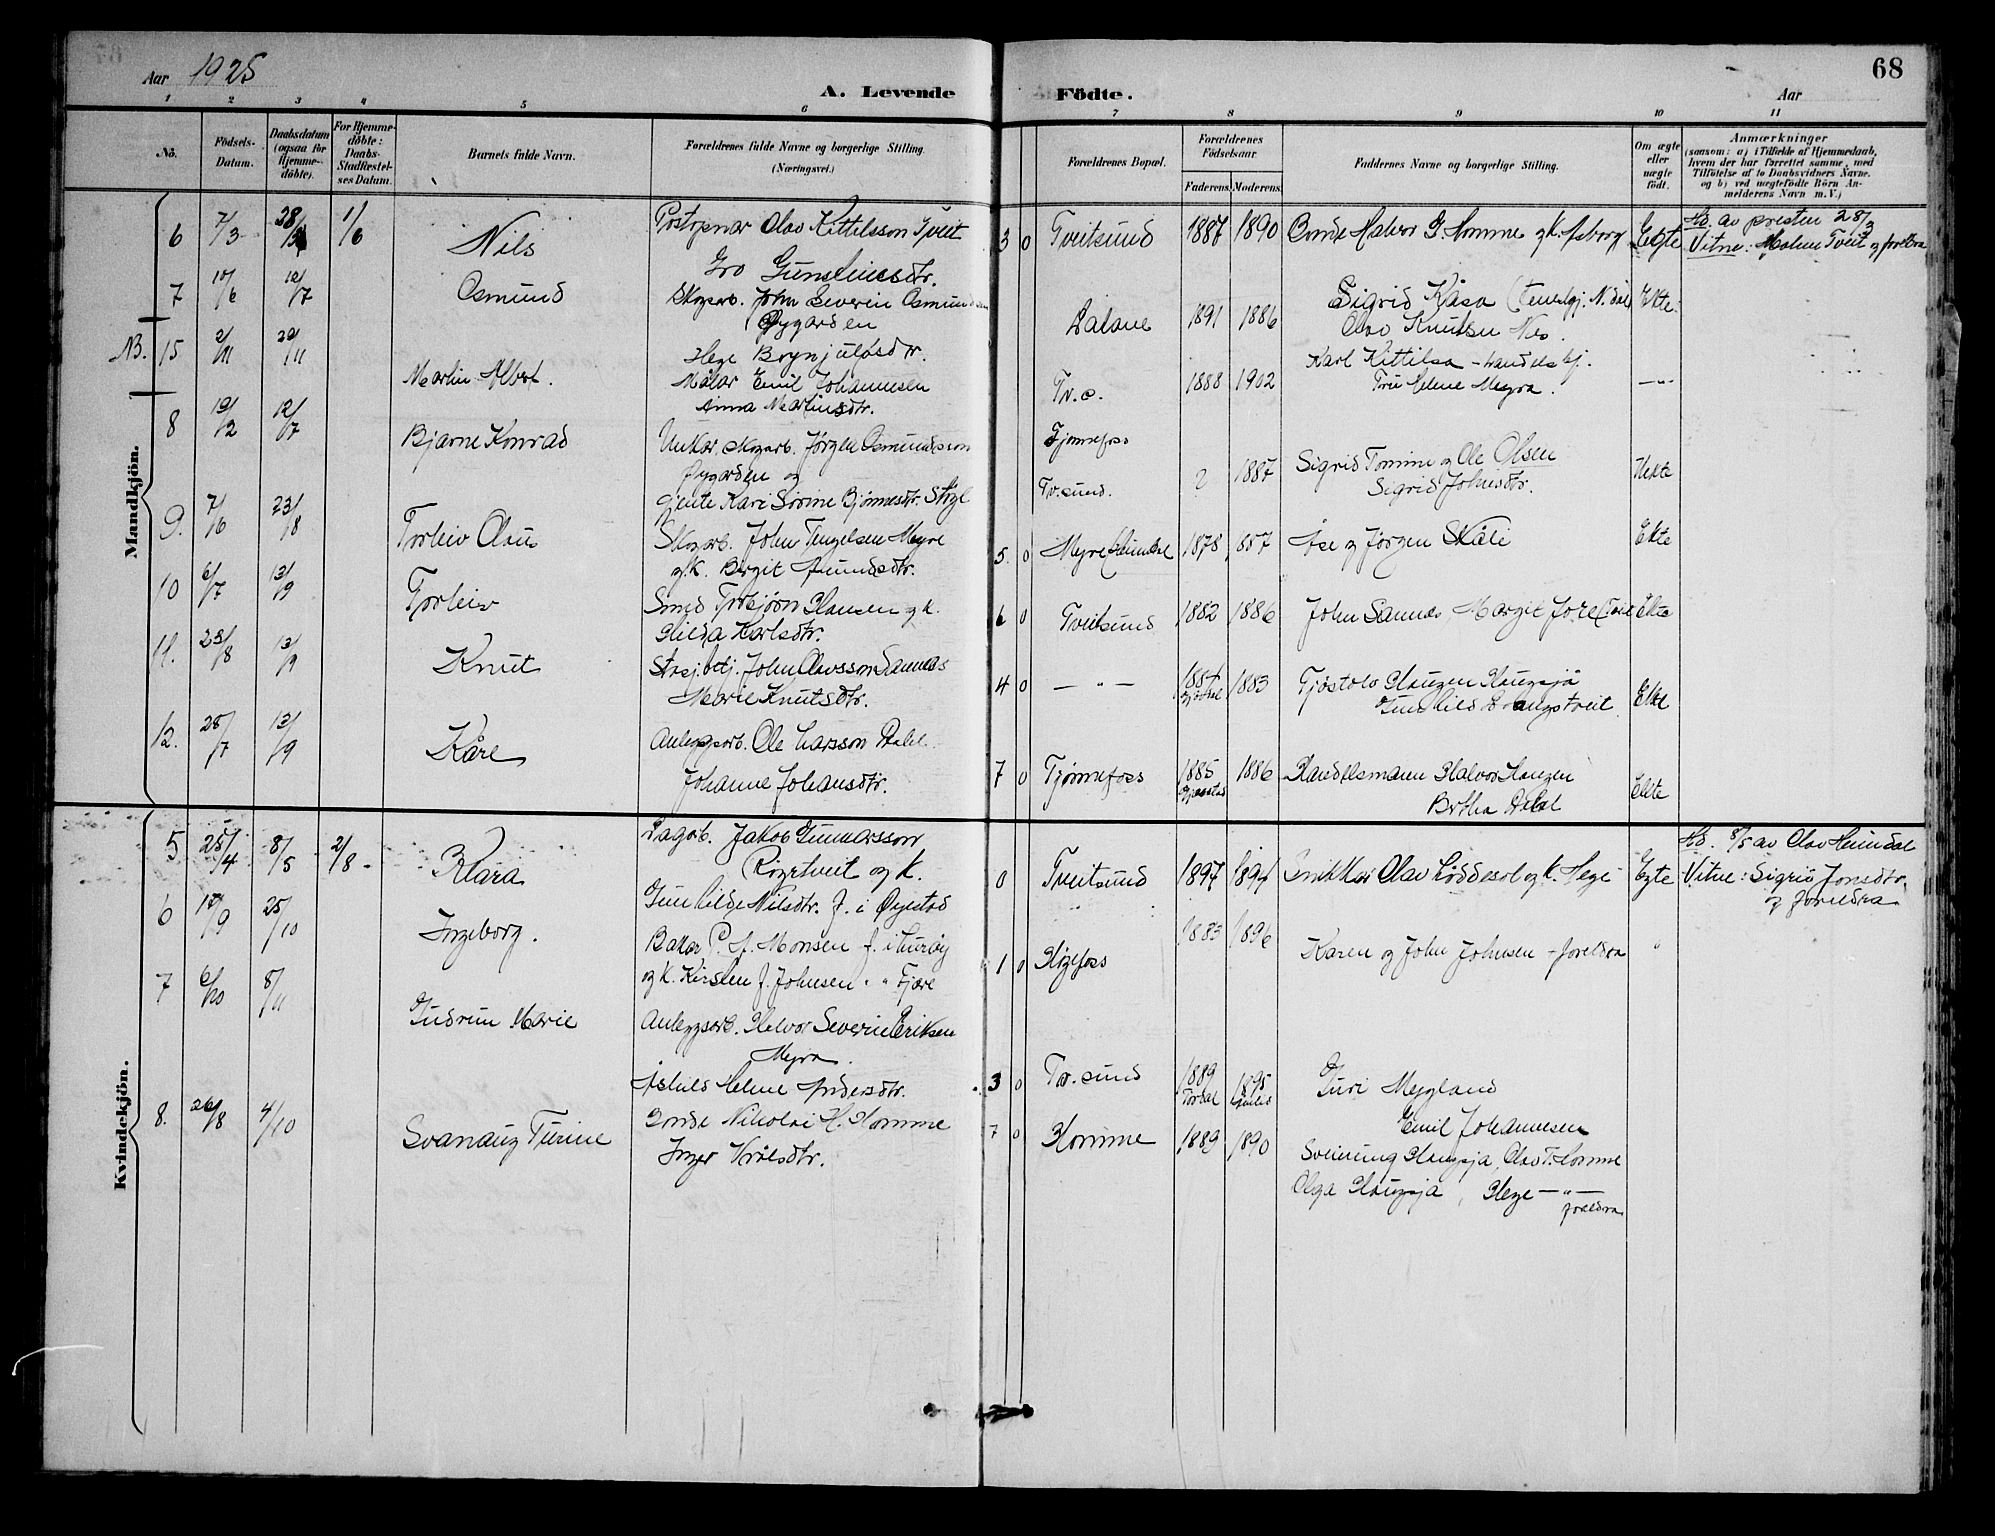 Aar 1925
A. Levende Födte.
68
Aar
1 2 3 4 5 6 7 8 9 10 11
No.
Födsels-Datum.
Daabsdatum (ogsaa for Hjemme-döbte).
For Hjemme-döbte: Daabs-Stadfæstel-ses Datum.
Barnets fulde Navn.
Forældrenes fulde Navne og borgerlige Stilling (Næringsvei.)
Forældrenes Bopæl.
Forældrenes Födselsaar.
Faderens. Moderens.
Faddernes Navne og borgerlige Stilling.
Om ægte eller uægte født.
Anmærkninger
(saasom: a) i Tilfælde af Hjemmedaab,
hvem der har forrettet samme, med
Tilföielse af to Daabsvidners Navne.
og b) ved uægtefödte Börn An-
melderens Navn m.V.)
Mandkjön.
6 7/3 28/3 1/6 Nils
Postopnar Olav Kittilsson Tveit
Gro Gunsteinsdtr.
3 0 Tveitsund 1887 1890 Bonde Halvor G. Homme og k. Asborg Egte
Hd. av presten 28/3
Vitne: Malene Tveit og foreldra
7 10/6 12/7 Osmund
Skogsarb. John Severin Osmundsen
Øygarden
Hege Brynjulvsdtr.
Dalane 1891 1886 Sigrid Kåsa
Olav Knutsen Nes. Ekte
NB. 15 2/11 29/11 Martin Albert.
Målar Emil Johannesen
Anna Martinsdtr.
Tv.s. 1888 1902 Karl Kittilsa - handelsbj.
Fru Helene Meyra. — " —
8 19/2 12/7 Bjarne Konrad
Unkar, skogsarb. Jørgen Osmundsson
Øygarden og
gjente Kari Sirine Bjønnesdtr.
Tjønnefoss
Tv.sund. ? 1887 Sigrid Tomine og Ole Olsen
Sigrid Johnsdtr. Uekte
9. 7/6 23/8 Torleiv Olav
Skogarb. John Tengelsen Meyre
og k. Birgit Åmundsdtr.
5. 0 Myre 1878 Åse og Jørgen Skåli Ekte
10 6/7 13/9 Torleiv
Smed Torbjørn Hansen og k.
Hilda Karlsdtr.
6 0 Tveitsund 1882 1886 John Sannes, Margit Ekte
11. 23/8 13/9 Knut
Stasj.betj. John Olavsson Sannes
Marie Knutsdtr.
4 0 — " — 1883 Tjøstolv Haugen Haugsjå
Gunhild Ekte
12. 28/7 13/9 Kåre
Anleggsarb. Ole Larsson Dahl.
Johanne Johansdtr.
7 0 Tjønnefoss 1885 1886 Handelsmann Halvor Haugen
Bertha Dahl Ekte
Kvindekjön.
5 25/4 8/5 2/8 Klara
Dagarb. Jakob Gunnarsson
Røgrtveit og k.
Gunhilde Nilsdtr. f. i Øyestad
0 Tveitsund 1897 Snikkar Olav Løddesol og k. Hege Egte
Hd. 8/5 av Olav Heimdal
Vitne: Sigrid Jonsdtr.
og foreldra
6 17/9 25/10 Ingeborg.
Bakar P. A. Monsen f. i
og k. Kirsten f. Johnsen " " Fjære
1 0 Høgefoss 1883 1896 Karen og John Johnsen - foreldra "
7 6/10 8/11 Gudrun Marie
Anleggsarb. Halvor Severin Eriksen
Meyra.
Åshild Helene Andersdtr.
3 0 Tv. sund 1889 Tørdal 1895 Guri Mejgland
Emil Johannesen
8. 26/8 4/10 Svanaug Turine
Bonde Nikolai H. Homme
Inger Kittilsdtr.
7 0 Homme 1889 1890 Sveinung Haugsjå, Olav T. Homme
Olga Haugsjå, Hege — " —
foreldra